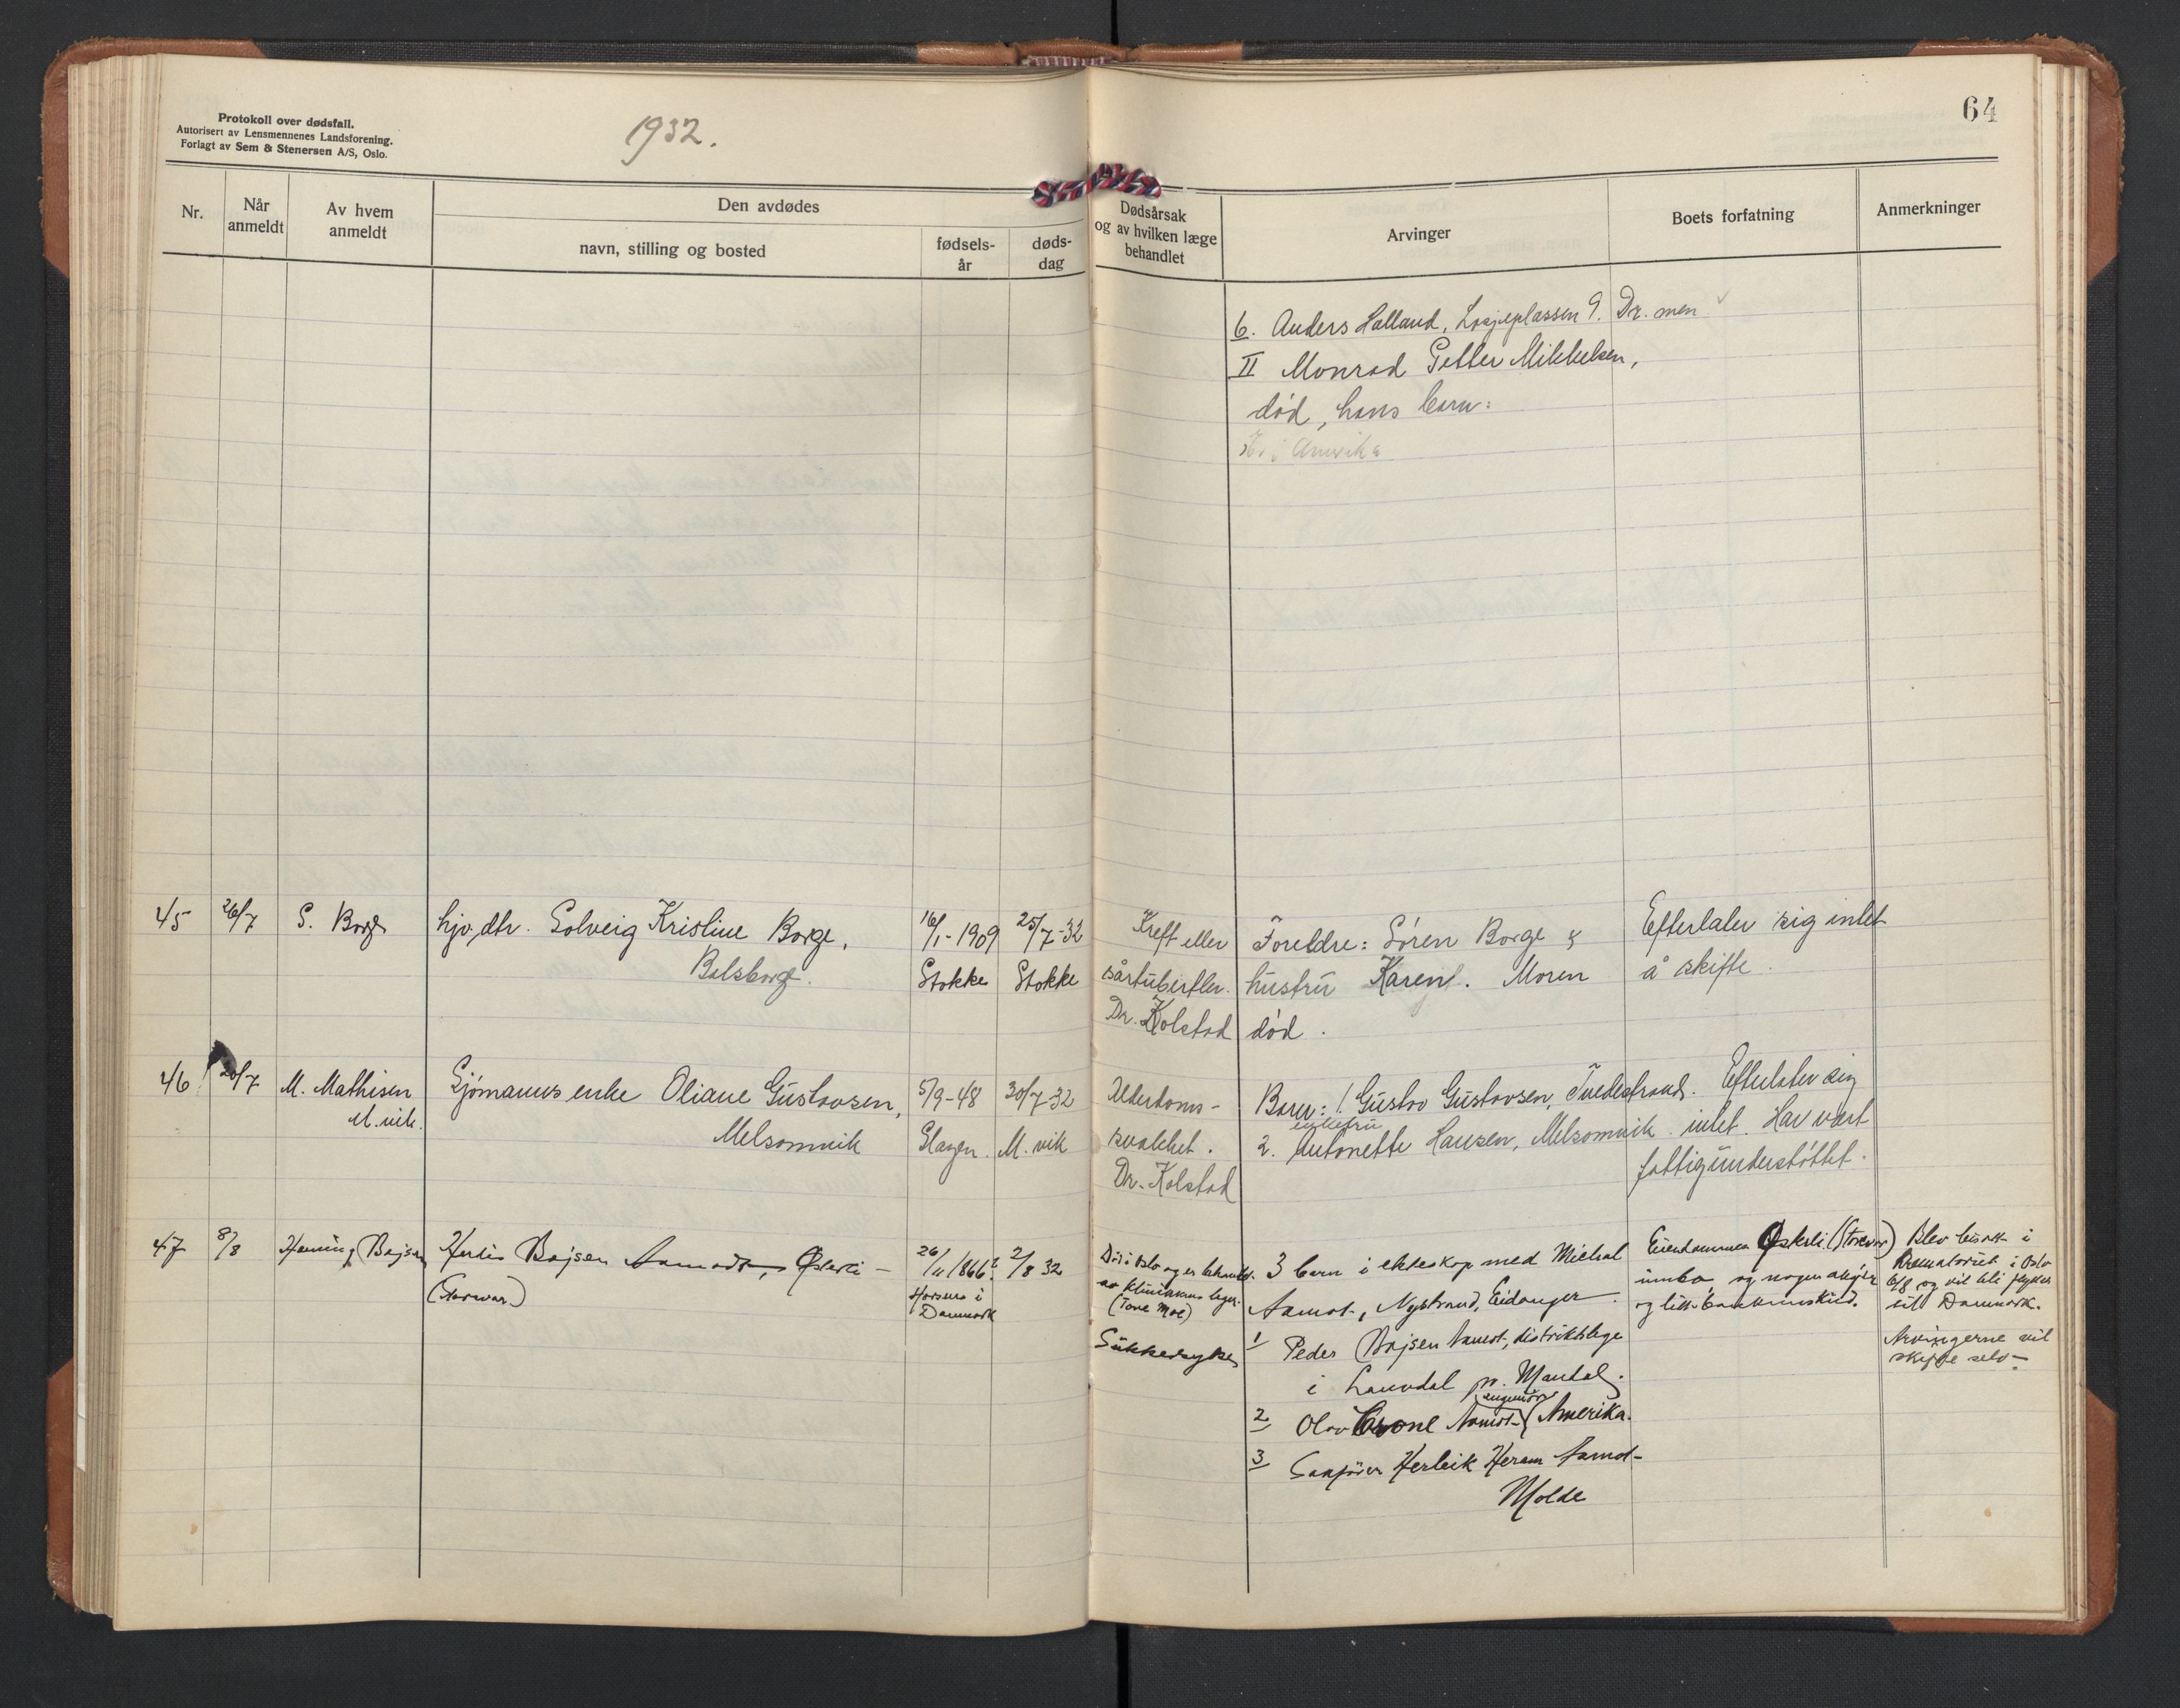 Protokoll over dødsfall.
Autorisert av Lensmennenes Landsforening.
Forlagt av Sem & Stenersen A/S, Oslo.
1932.
64
Nr.
Når
anmeldt
Av hvem
anmeldt
Den avdødes
navn, stilling og bosted
fødsels-
år
døds-
dag
Dødsårsak
og av hvilken læge
behandlet
Arvinger
Boets forfatning
Anmerkninger
6. Anders Halland, Losjeplassen 9. Dr. men
II Monrad Petter Mikkelsen,
død, hans barn:
i Amerika
45
26/7
S. Borge
hjv. dtr. Solveig Kristine Borge,
Bolsborg.
16/1-1909
Stokke
25/7-32
Stokke
Kreft eller
sårtuberkler.
Dr. Kolstad
Foreldre: Søren Borge &
hustru Karen. Moren
død.
Efterlater sig intet
å skifte.
46
/7
M. Mathisen
M.vik.
Sjømanns enke Oliane Gustavsen,
Melsomvik
5/9-48
Slagen.
30/7-32
M. vik
Alderdoms-
svakhet.
Dr. Kolstad
Barn: 1. Gustav Gustavsen, Tvedestrand.
enkefru
2. Antonette Hansen, Melsomvik.
Efterlater sig
intet. Har vært
fattigunderstøttet.
47
8/8
Henning Bojsen
Bojsen Aamodt, Østerli -
(Storevar)
26/11 1866?
Horsens i
Danmark
2/8 32
Død i Oslo og er behandlet
av klinikkens leger.
(Tove Moe)
Sukkersyke
3 barn i ekteskap med Michal
Aamot, Nystrand, Eidanger.
1 Peder Bojsen Aamot, distriktslege
i Laudal pr. Mandal.
ingeniør
2 Olav Crone Aamot, Amerika.
3 Sakfører Herleik Heram Aamot-
Molde
Eiendommen Østerli (Storevar)
innbo og nogen aksjer
og litt bankinnskud.
Blev bisatt i
Krematoriet i Oslo
6/8 og vil bli flyttet
til Danmark.
Arvingerne vil
skifte selv -